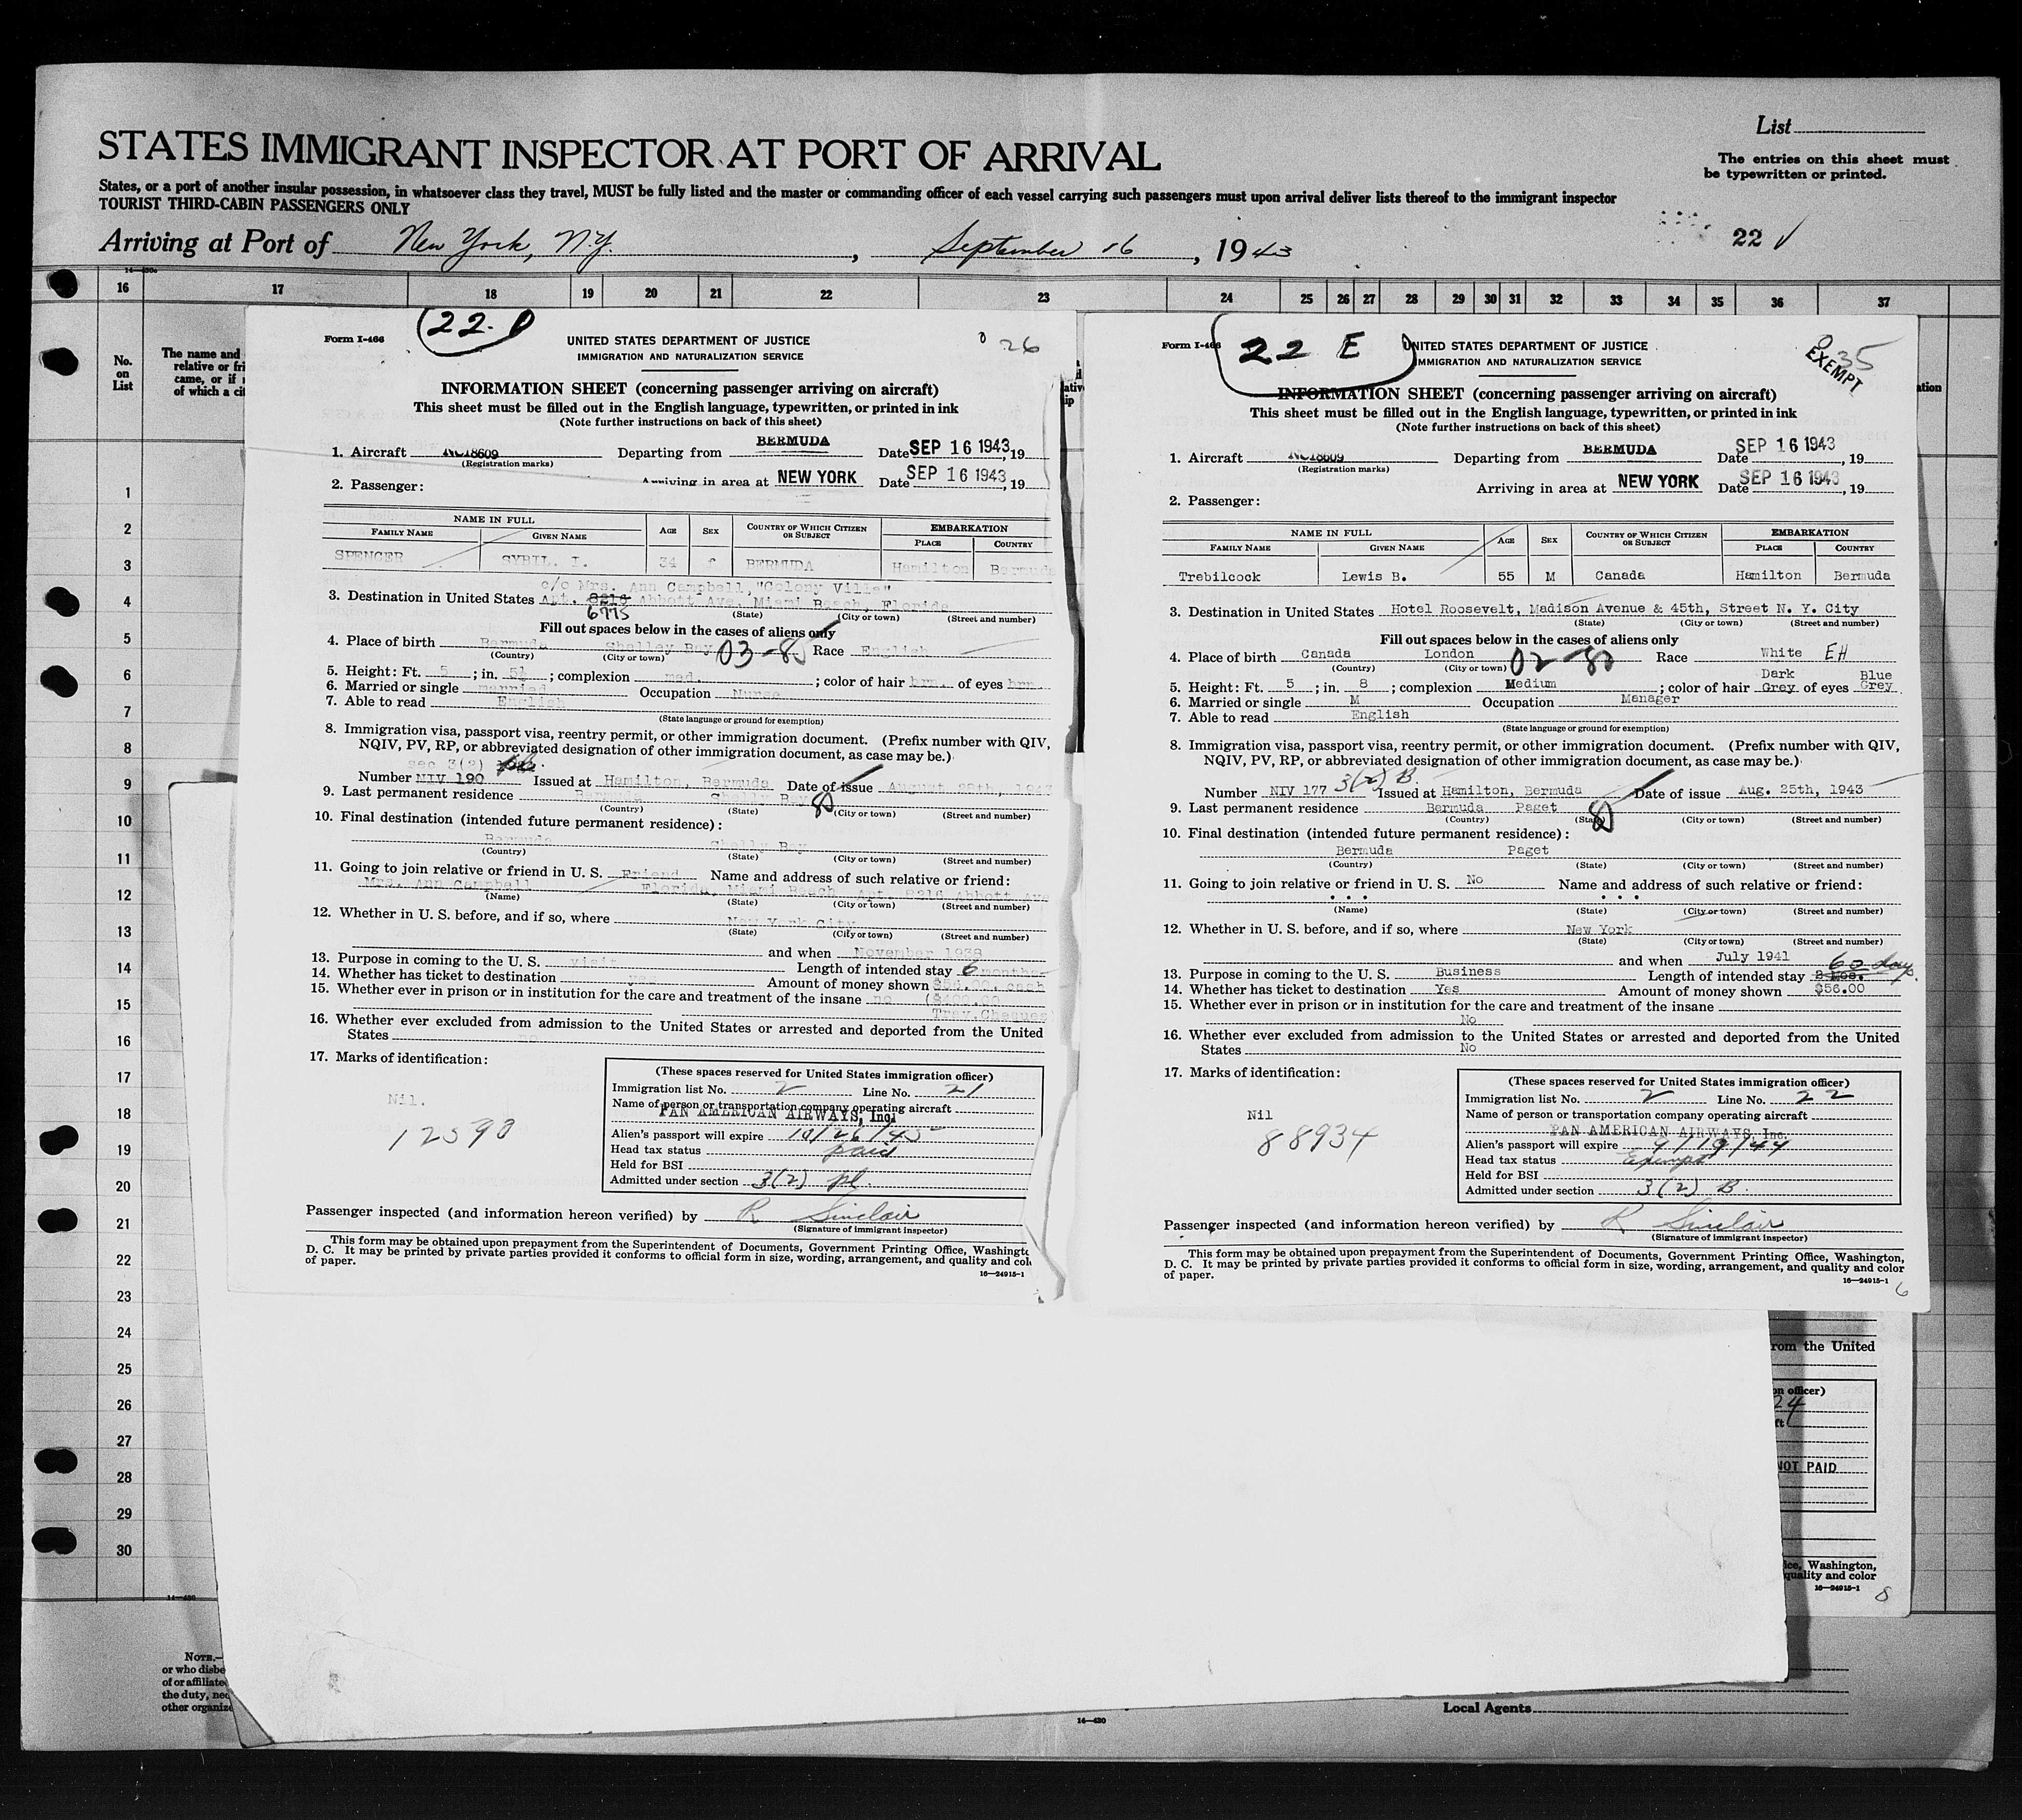 STATES IMMIGRANT INSPECTOR AT PORT OF ARRIVAL
List
The entries on this sheet must be typewritten or printed.
States, or a port of another insular possession, in whatsoever class they travel, MUST be fully listed and the master or commanding officer of each vessel carrying such passengers must upon arrival deliver lists thereof to the immigrant inspector
TOURIST THIRD-CABIN PASSENGERS ONLY
Arriving at Port of New York, N.Y., September 16, 1943
22 ✓
16 17 18 19 20 21 22 23 24 25 26 27 28 29 30 31 32 33 34 35 36 37
No. on List
The name and
relative or fri
came, or if
of which a cit
1
2
3
4
5
6
7
8
9
10
11
12
13
14
15
16
17
18
19
20
21
22
23
24
25
26
27
28
29
30
Form I-466
UNITED STATES DEPARTMENT OF JUSTICE
26
IMMIGRATION AND NATURALIZATION SERVICE
INFORMATION SHEET (concerning passenger arriving on aircraft)
This sheet must be filled out in the English language, typewritten, or printed in ink
(Note further instructions on back of this sheet)
1. Aircraft NC18609 Departing from BERMUDA Date SEP 16 1943, 19
(Registration marks)
Arriving in area at NEW YORK Date SEP 16 1943, 19
2. Passenger:
NAME IN FULL AGE SEX COUNTRY OF WHICH CITIZEN OR SUBJECT EMBARKATION
FAMILY NAME GIVEN NAME PLACE COUNTRY
SPENCER SYBIL I. 34 f BERMUDA Hamilton Bermuda
c/o Mrs. Ann Campbell, "Colony Villa"
3. Destination in United States Apt. 8216 Abbott Ave. Miami Beach, Florida
6775 (State) (City or town) (Street and number)
Fill out spaces below in the cases of aliens only
4. Place of birth Bermuda Shelley Bay 03-80 Race English
(Country) (City or town)
5. Height: Ft. 5; in. 5½; complexion med.; color of hair brn. of eyes brn.
6. Married or single married Occupation Nurse
7. Able to read English
(State language or ground for exemption)
8. Immigration visa, passport visa, reentry permit, or other immigration document. (Prefix number with QIV, NQIV, PV, RP, or abbreviated designation of other immigration document, as case may be.)
sec 3(2)
Number NIV 190 Issued at Hamilton, Bermuda Date of issue August 28th, 1943
9. Last permanent residence Bermuda Shelly Bay
(Country) (State) (City or town) (Street and number)
10. Final destination (intended future permanent residence):
Bermuda Shelly Bay
(Country) (State) (City or town) (Street and number)
11. Going to join relative or friend in U. S. Friend Name and address of such relative or friend:
Mrs. Ann Campbell Florida, Miami Beach, Apt. 8216 Abbott Ave
(Name) (State) (City or town) (Street and number)
12. Whether in U. S. before, and if so, where New York City
(State) (City or town) (Street and number)
and when November 1938
13. Purpose in coming to the U. S. visit Length of intended stay 6 months
14. Whether has ticket to destination yes Amount of money shown $56.00. cash
15. Whether ever in prison or in institution for the care and treatment of the insane no ($400.00
Trav.Cheques
16. Whether ever excluded from admission to the United States or arrested and deported from the United
States no
17. Marks of identification:
Nil.
12590
(These spaces reserved for United States immigration officer)
Immigration list No. 2 Line No. 21
Name of person or transportation company operating aircraft
PAN AMERICAN AIRWAYS, Inc.
Alien's passport will expire 10/26/45
Head tax status paid
Held for BSI
Admitted under section 3(2) pl.
Passenger inspected (and information hereon verified) by R Sinclair
(Signature of immigrant inspector)
This form may be obtained upon prepayment from the Superintendent of Documents, Government Printing Office, Washingto
D. C. It may be printed by private parties provided it conforms to official form in size, wording, arrangement, and quality and col
of paper.
16—24915-1
Form I-466
22 E
UNITED STATES DEPARTMENT OF JUSTICE
35
EXEMPT
IMMIGRATION AND NATURALIZATION SERVICE
INFORMATION SHEET (concerning passenger arriving on aircraft)
This sheet must be filled out in the English language, typewritten, or printed in ink
(Note further instructions on back of this sheet)
1. Aircraft NC18609 Departing from BERMUDA Date SEP 16 1943, 19
(Registration marks)
Arriving in area at NEW YORK Date SEP 16 1943, 19
2. Passenger:
NAME IN FULL AGE SEX COUNTRY OF WHICH CITIZEN OR SUBJECT EMBARKATION
FAMILY NAME GIVEN NAME PLACE COUNTRY
Trebilcock Lewis B. 55 M Canada Hamilton Bermuda
3. Destination in United States Hotel Roosevelt, Madison Avenue & 45th, Street N. Y. City
(State) (City or town) (Street and number)
Fill out spaces below in the cases of aliens only
4. Place of birth Canada London 02-80 Race White EH
(Country) (City or town)
Dark Blue
5. Height: Ft. 5; in. 8; complexion Medium; color of hair Grey of eyes Grey
6. Married or single M Occupation Manager
7. Able to read English
(State language or ground for exemption)
8. Immigration visa, passport visa, reentry permit, or other immigration document. (Prefix number with QIV,
NQIV, PV, RP, or abbreviated designation of other immigration document, as case may be.)
Number NIV 177 3(2) B. Issued at Hamilton, Bermuda Date of issue Aug. 25th, 1943
9. Last permanent residence Bermuda Paget
(Country) (State) (City or town) (Street and number)
10. Final destination (intended future permanent residence):
Bermuda Paget
(Country) (State) (City or town) (Street and number)
11. Going to join relative or friend in U. S. No Name and address of such relative or friend:
. . . . . .
(Name) (State) (City or town) (Street and number)
12. Whether in U. S. before, and if so, where New York
(State) (City or town) (Street and number)
and when July 1941
13. Purpose in coming to the U. S. Business Length of intended stay 60 days
14. Whether has ticket to destination Yes Amount of money shown $56.00
15. Whether ever in prison or in institution for the care and treatment of the insane
No
16. Whether ever excluded from admission to the United States or arrested and deported from the United
States No
17. Marks of identification:
Nil
88934
(These spaces reserved for United States immigration officer)
Immigration list No. 2 Line No. 22
Name of person or transportation company operating aircraft
PAN AMERICAN AIRWAYS, Inc.
Alien's passport will expire 9/19/44
Head tax status Exempt
Held for BSI
Admitted under section 3(2) B.
Passenger inspected (and information hereon verified) by R Sinclair
(Signature of immigrant inspector)
This form may be obtained upon prepayment from the Superintendent of Documents, Government Printing Office, Washington,
D. C. It may be printed by private parties provided it conforms to official form in size, wording, arrangement, and quality and color
of paper.
16—24915-1
6
rom the United
on officer)
24
NOT PAID
ice, Washington,
quality and color
16—24915-1
8
14—430
NOTE.—
or who disbe
of or affiliate
the duty, nec
other organize
Local Agents
14—430